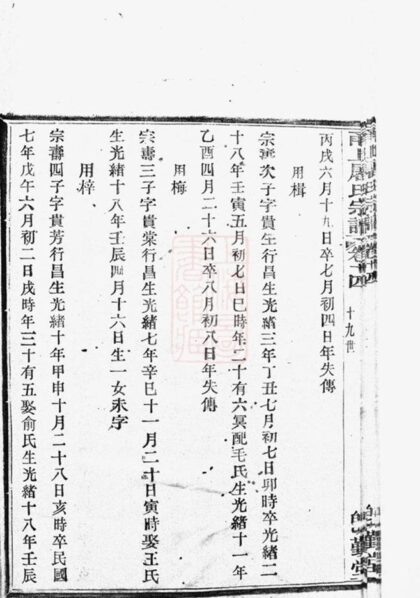 丙戌六月十九日卒七月初四日年失傳
用楫
宗壽次子字貴生行昌生光緒三年丁丑七月初七日卯時卒光緒二
十八年壬寅五月初七日巳時年二十有六冥配毛氏生光緒十一年
乙酉四月二十六日卒八月初八日年失傳
用梅
宗壽三子字貴棠行昌生光緒七年辛巳十一月二十日寅時娶王氏
生光緒十八年壬辰四月十六日生一女未字
用梓
宗壽四子字貴芳行昌生光緒十年甲申十月二十八日亥時卒民國
七年戊午六月初二日戌時年三十有五娶俞氏生光緒十八年壬辰
氏宗譜
卷十四
十九世
勤堂